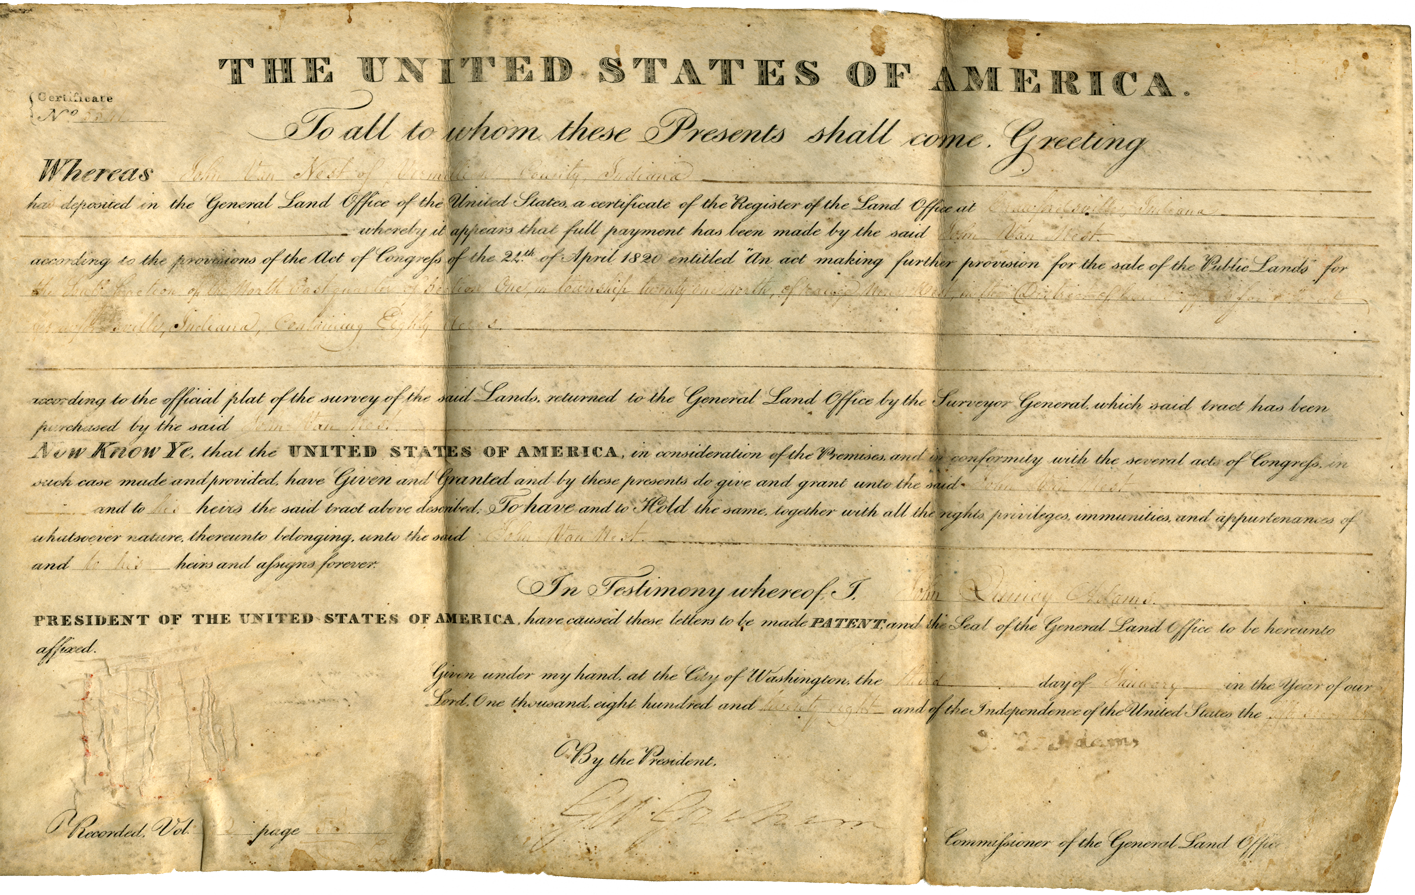 THE UNITED STATES OF AMERICA.
Certificate
No
To all to whom these Presents shall come. Greeting
Whereas John Van Nest of County Indiana
has deposited in the General Land Office of the United States, a certificate of the Register of the Land Office at Crawfordsville, Indiana
whereby it appears that full payment has been made by the said John Van Nest
according to the provisions of the Act of Congress of the 24th of April 1820 entitled "An act making further provision for the sale of the Public Lands" for
the of the North East quarter of Section One, in township twenty one north, of range West, in the District of
Indiana, Containing Eighty Acres
according to the official plat of the survey of the said Lands, returned to the General Land Office by the Surveyor General, which said tract has been
purchased by the said John Van Nest.
Now Know Ye, that the UNITED STATES OF AMERICA, in consideration of the Premises, and in conformity with the several acts of Congress, in
such case made and provided, have Given and Granted and by these presents do give and grant unto the said John Van Nest
and to his heirs the said tract above described; To have and to Hold the same, together with all the rights, privileges, immunities, and appurtenances of
whatsoever nature, thereunto belonging, unto the said John Van Nest
and to his heirs and assigns forever.
In Testimony whereof, I, John Quincy Adams
PRESIDENT OF THE UNITED STATES OF AMERICA, have caused these letters to be made PATENT, and the Seal of the General Land Office to be hereunto
affixed.
Given under my hand, at the City of Washington, the third day of January in the Year of our
Lord, One thousand, eight hundred and twenty eight and of the Independence of the United States the
J. Q. Adams
By the President,
Recorded, Vol. page
Commissioner of the General Land Office